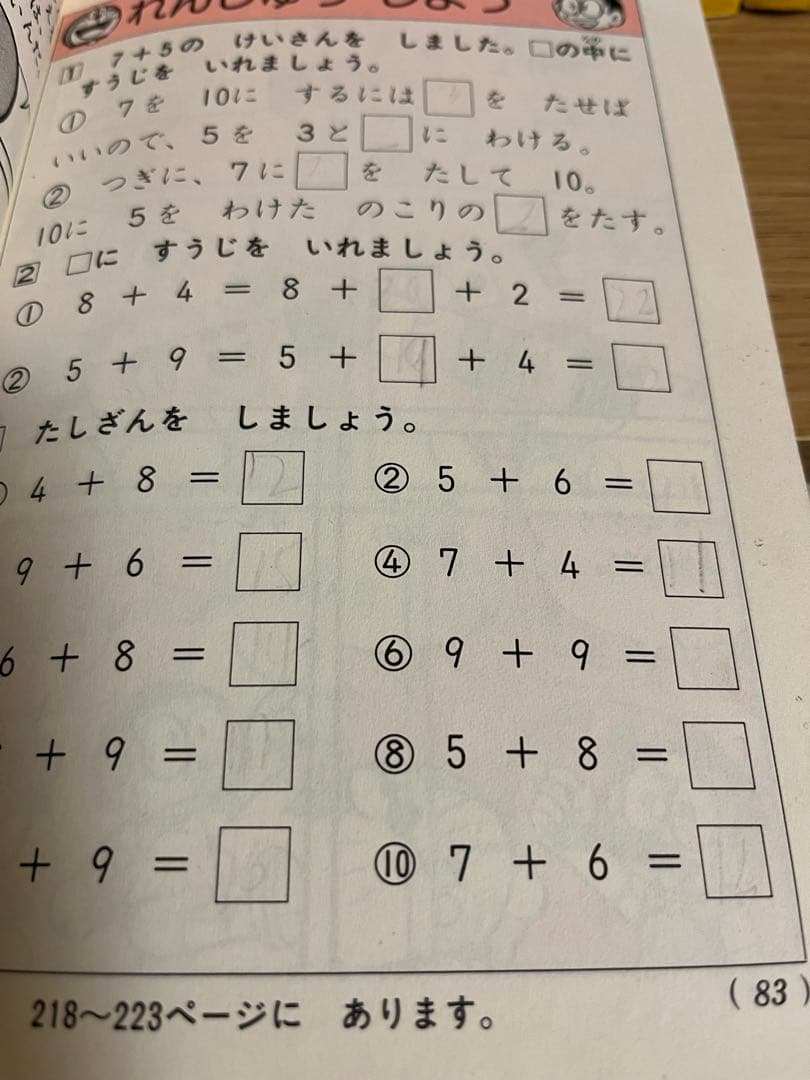 れんしゅうしよう
1 7+5の けいさんを しました。□の中に
すうじを いれましょう。
① 7を 10に するには□を たせば
いいので、5を 3と□に わける。
② つぎに、7に□を たして 10。
10に 5を わけた のこりの□をたす。
2 □に すうじを いれましょう。
① 8 + 4 = 8 + □ + 2 = □
② 5 + 9 = 5 + □ + 4 = □
たしざんを しましょう。
4 + 8 = 12 ② 5 + 6 = □
9 + 6 = □ ④ 7 + 4 = 11
6 + 8 = □ ⑥ 9 + 9 = □
+ 9 = □ ⑧ 5 + 8 = □
+ 9 = □ ⑩ 7 + 6 = □
218〜223ページに あります。
(83)